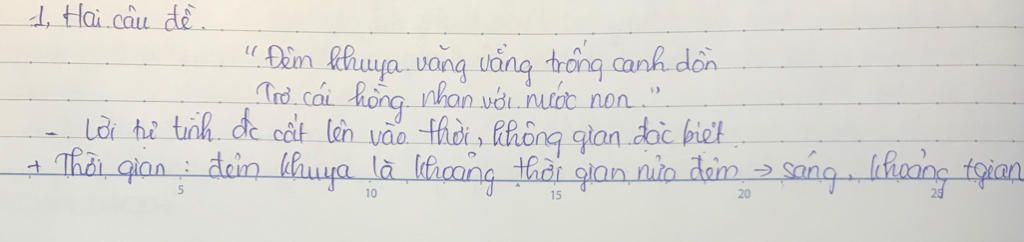 1, Hai câu đề.
"Đêm khuya văng vẳng trống canh dồn
Trơ cái hồng nhan với nước non."
- Lời tự tình đc cất lên vào thời, không gian đặc biệt
+ Thời gian : đêm khuya là khoảng thời gian nửa đêm → sáng, khoảng tgian
5 10 15 20 25